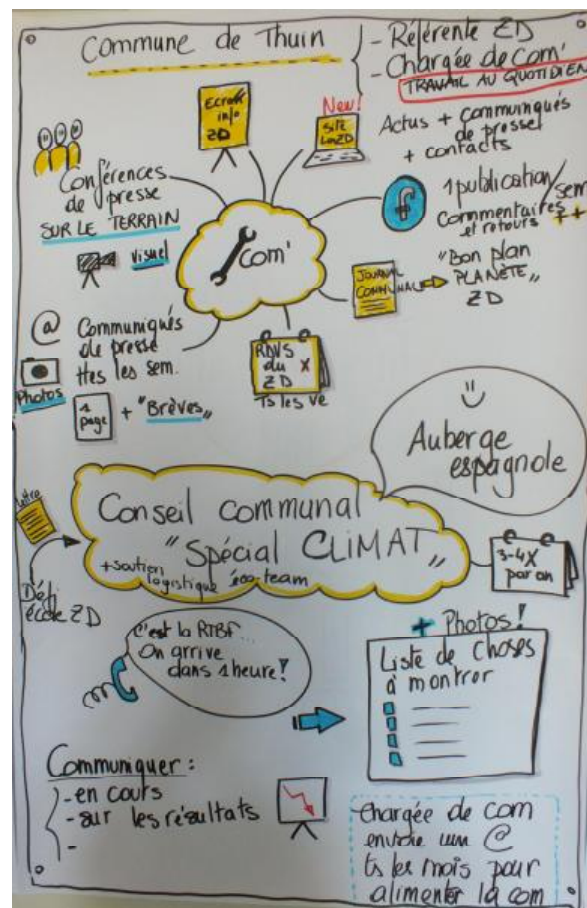 Commune de Thuin
- Référente ZD
- Chargée de com'
TRAVAIL AU QUOTIDIEN
Ecran
info
ZD
New!
Site
Actus + communiqués
de presse
+ contacts
Conférences
de presse
SUR LE TERRAIN
visuel
Com'
f
1 publication/sem
Commentaires
et retours ++
JOURNAL
COMMUNAL
"Bon plan
PLANÈTE"
ZD
@ Communiqués
de presse
ttes les sem.
Photos
1
page
+ "Brèves"
RDVS
du
ZD X
Ts les ve
Auberge
espagnole
Conseil communal
"Spécial CLiMAT"
+ soutien
logistique éco-team
3-4X
par an
Défi
école ZD
C'est la RTBF...
On arrive
dans 1 heure!
+ Photos!
Liste de choses
à montrer
Communiquer :
- en cours
- sur les résultats
-
Chargée de com
envoie un @
ts les mois pour
alimenter la com